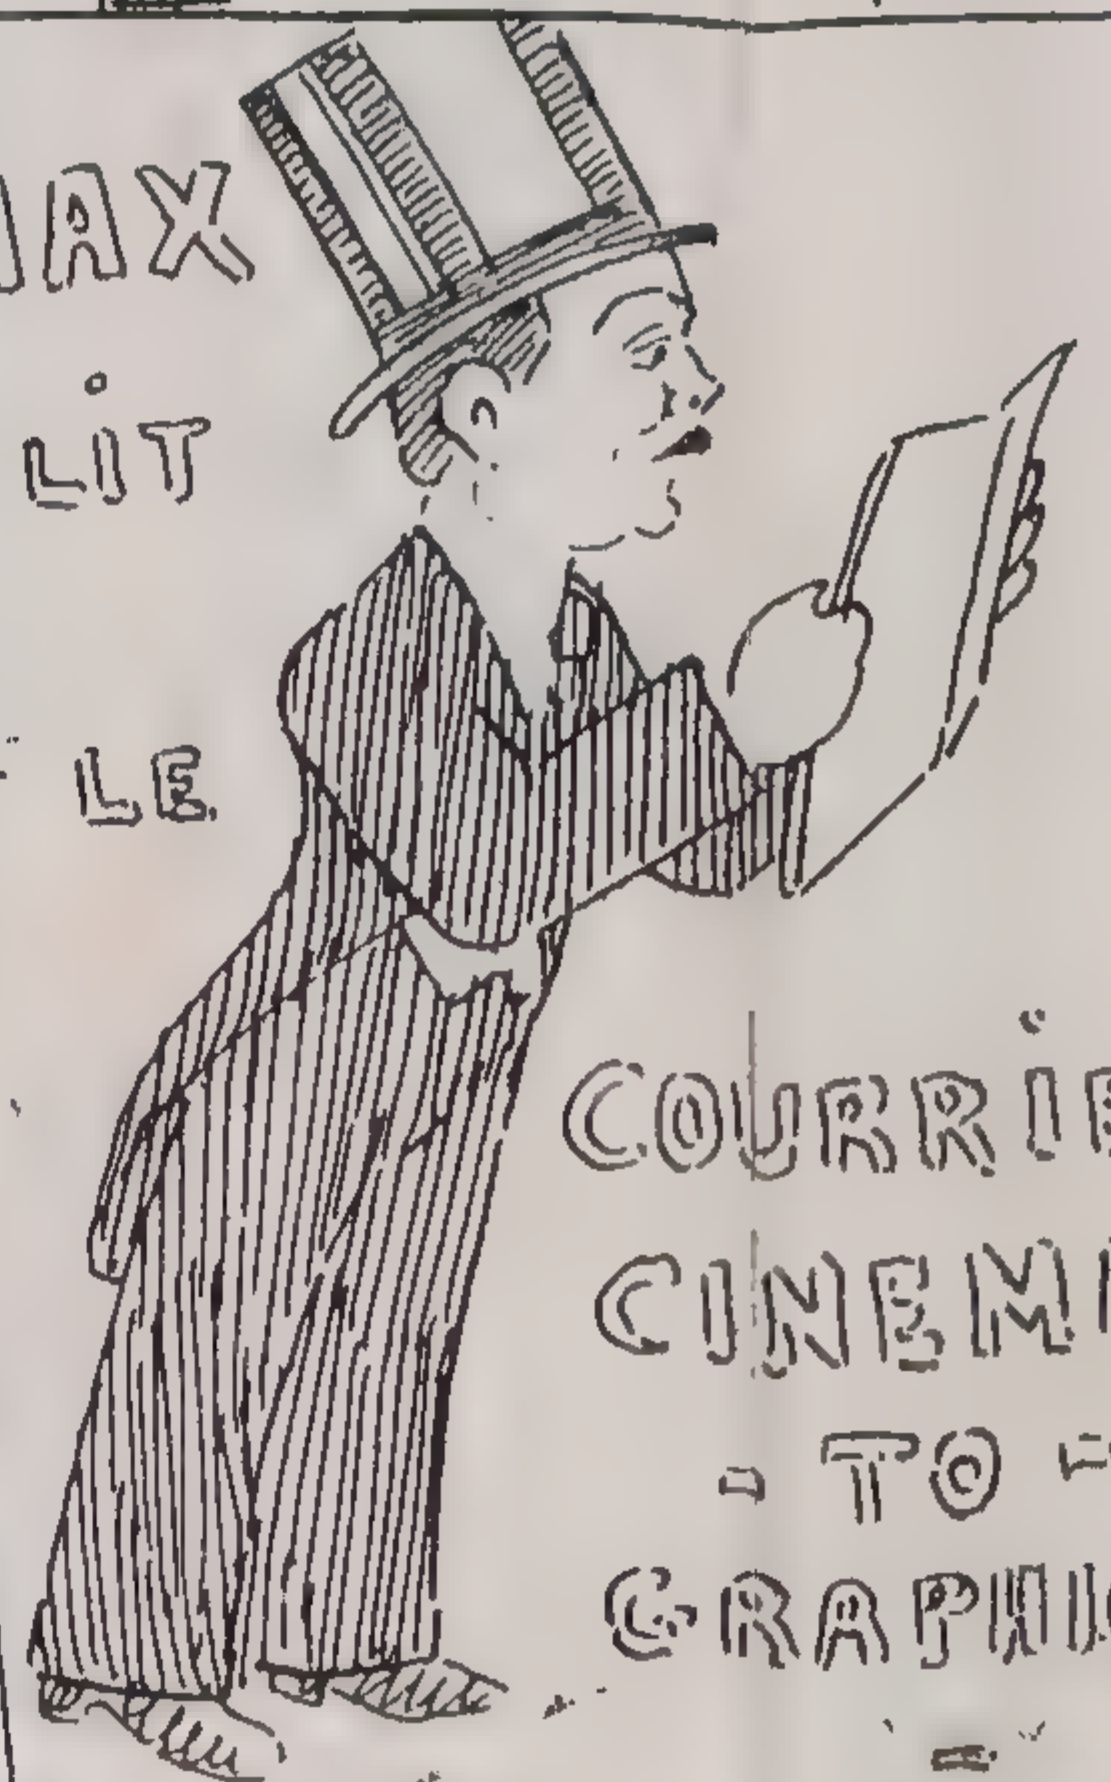 MAX
LIT
LE
COURRIE
CINEM
- TO -
GRAPHI